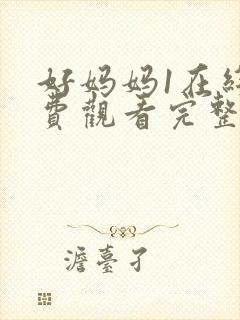 好妈妈1在
費觀看完整
澹臺子